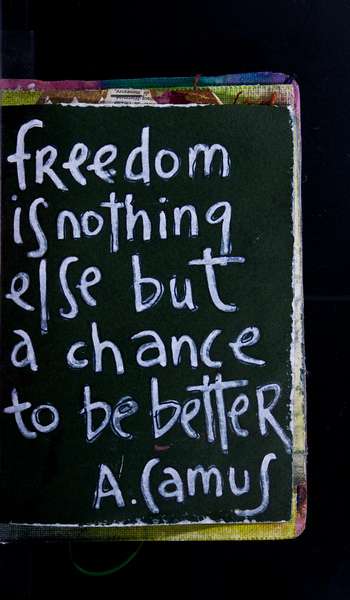 freedom
is nothing
else but
a chance
to be better
A. Camus